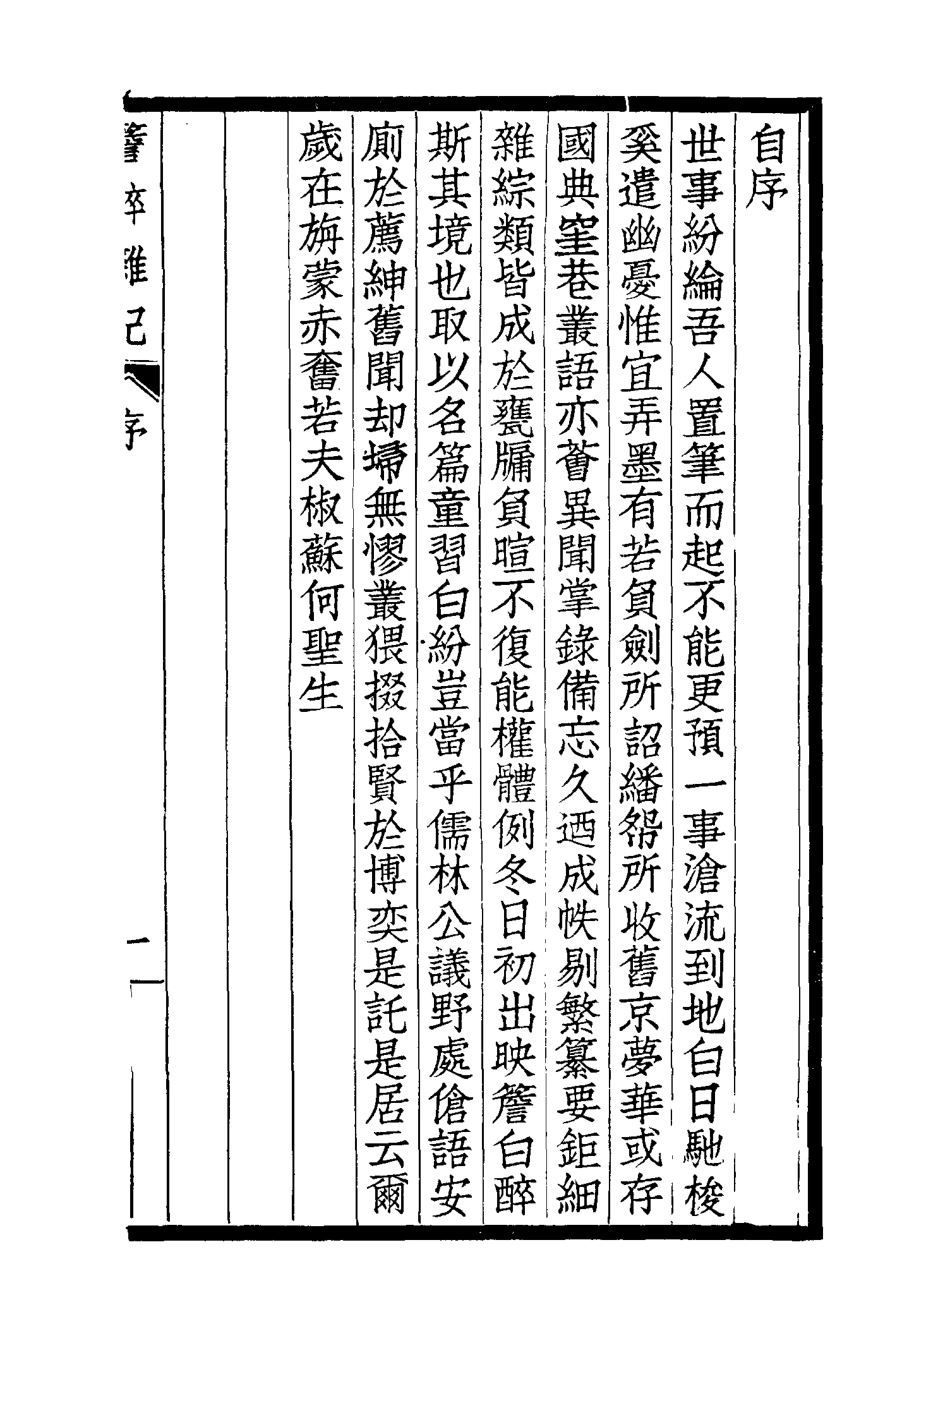 自序
世事紛綸吾人置筆而起不能更預一事滄流到地白日馳梭
奚遣幽憂惟宜弄墨有若負劍所詔繙帤所收舊京夢華或存
國典窐巷叢語亦薈異聞掌錄備忘久迺成帙剔繁纂要鉅細
雜綜類皆成於甕牖負暄不復能權體例冬日初出映簷白醉
斯其境也取以名篇童習白紛豈當乎儒林公議野處傖語安
廁於薦紳舊聞却埽無憀叢猥掇拾賢於博奕是託是居云爾
歲在旃蒙赤奮若夫椒蘇何聖生
簷醉雜記 序 一